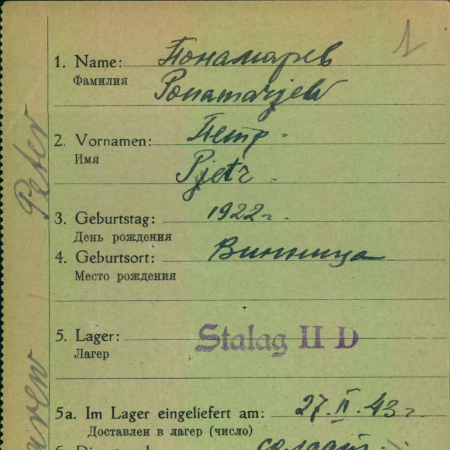 1
1. Name: Пономарев
Фамилия
Ponamarjew
2. Vornamen: Петр
Имя
Pjetr
3. Geburtstag: 1922 г.
День рождения
4. Geburtsort: Винница
Место рождения
5. Lager: Stalag II D
Лагерь
5a. Im Lager eingeliefert am: 27. II. 43 г.
Доставлен в лагерь (число)
солдат
Peter